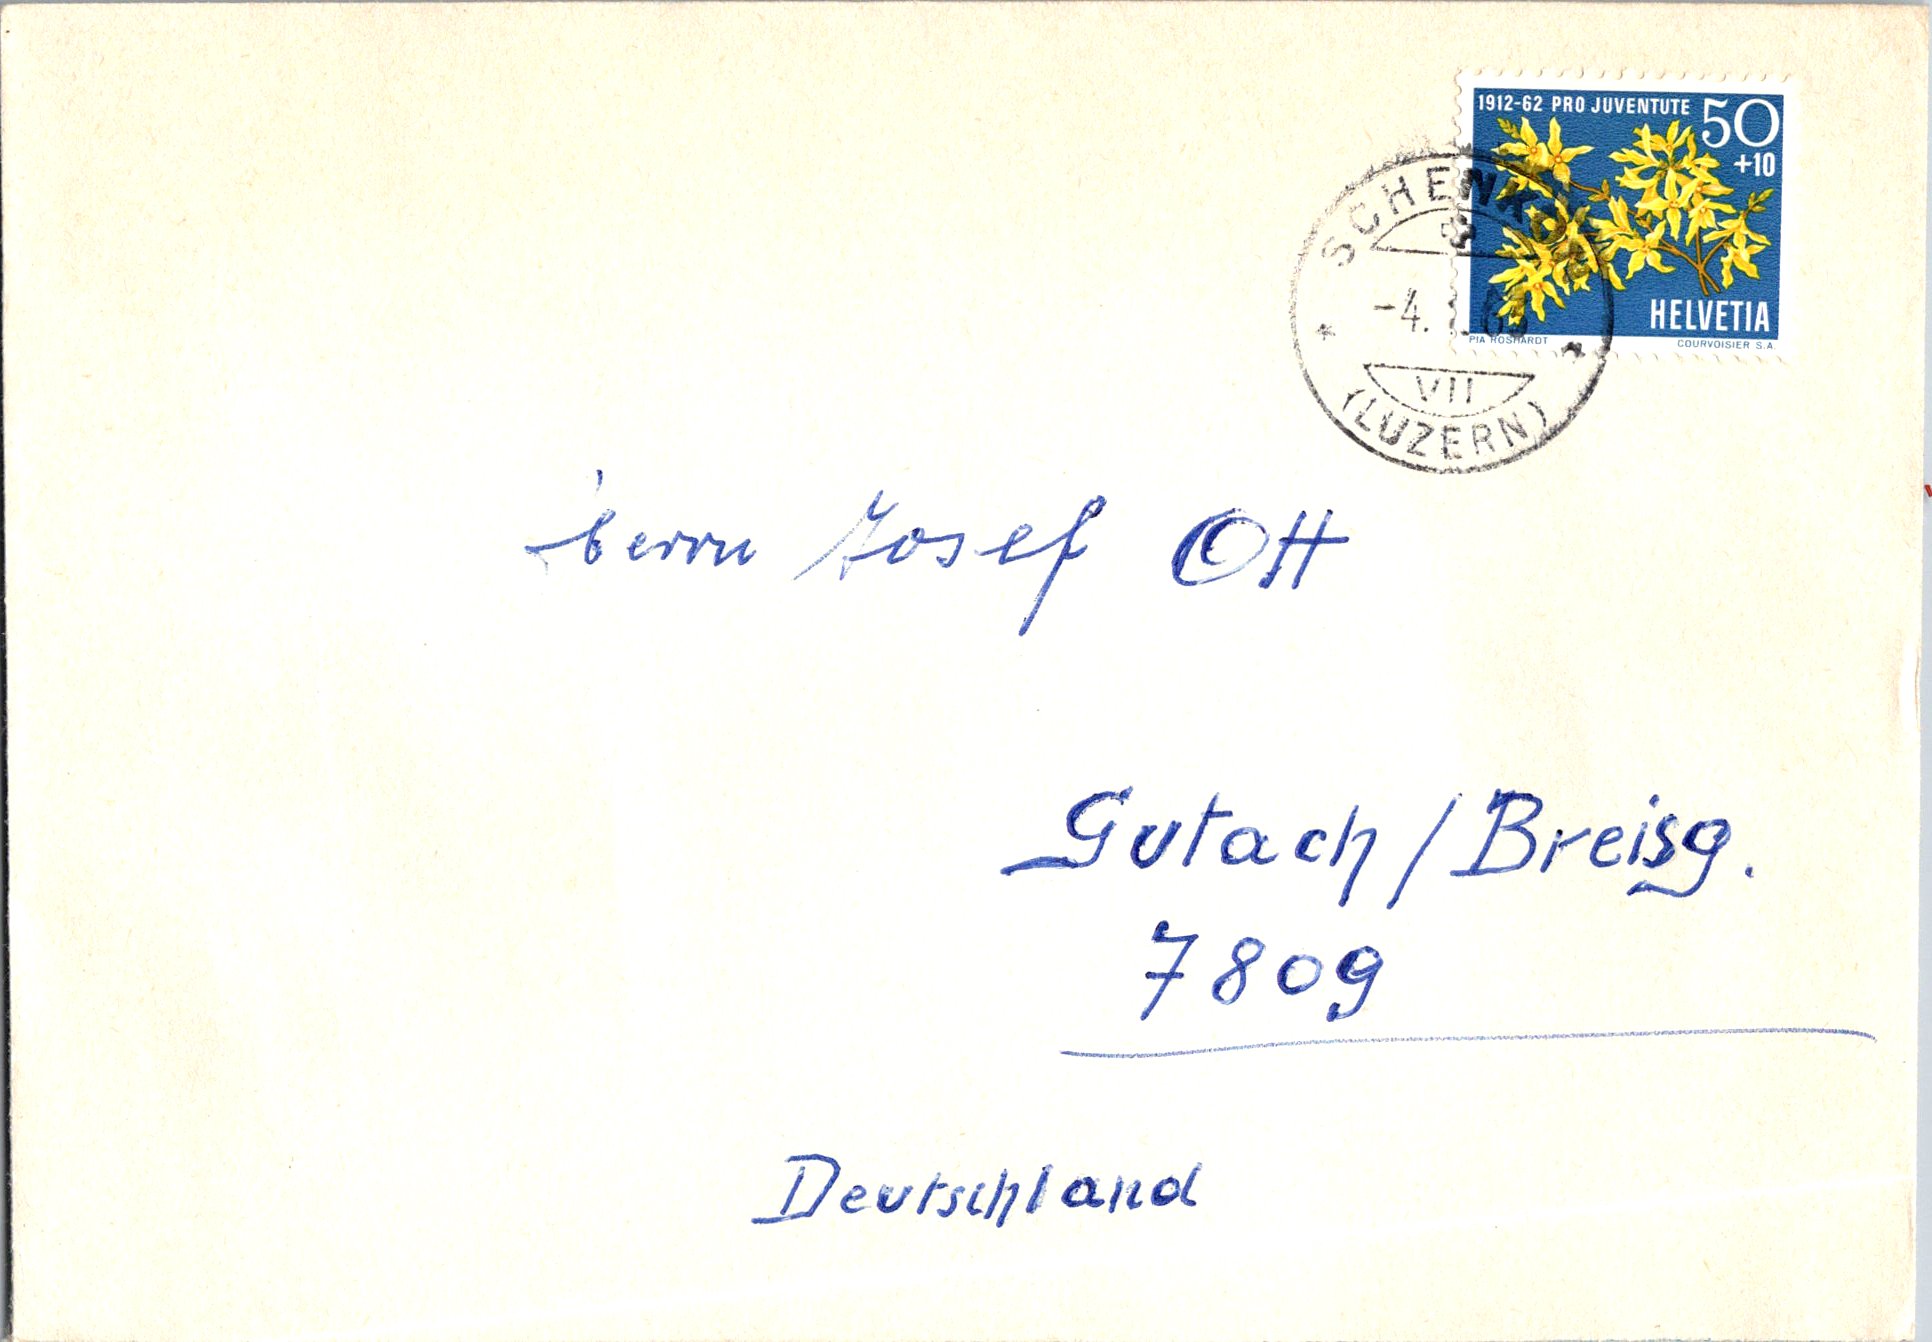 1912-62 PRO JUVENTUTE 50
+10
HELVETIA
PIA ROSHARDT COURVOISIER S.A.
SCHENKON
-4.
VII
(LUZERN)
Herrn Josef Ott
Gutach / Breisg.
7809
Deutschland